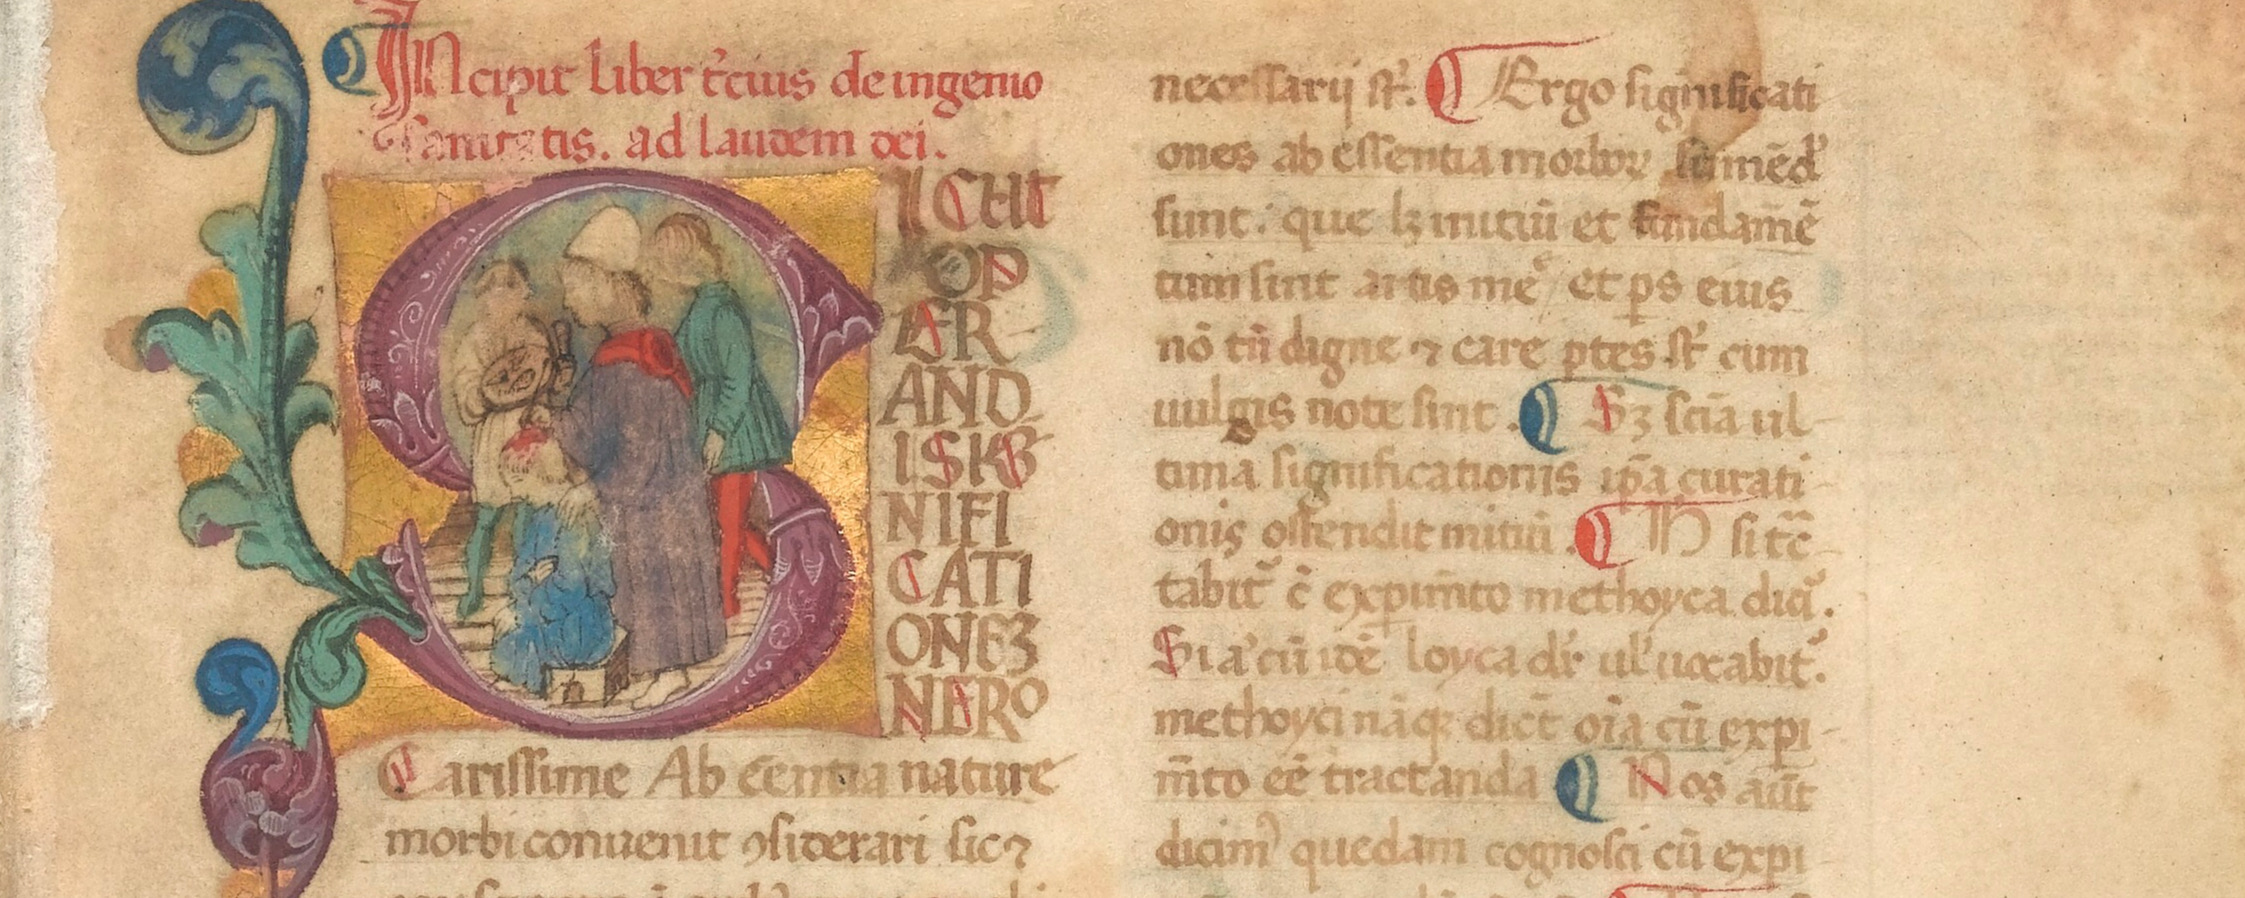 INcipit liber t̃cius de ingenio
sanitatis. ad laudem dei.
SICUT
OP
ER
AND
ISIG
NIFI
CATI
ONEʒ
NERO
Carissime Ab eẽntia nature
morbi conuenit ꝯsiderari sic ⁊
necessarij st̃. Ergo significati
ones ab essentia morboꝝ
sunt. que lʒ initiũ et fundam̃ẽ
tum sint artis me et ꝑs eius
nõ tñ digne ⁊ care ptes st̃ cum
uulgis note sint. Sʒ sciã ul
tima significationis ip̃a curati
onis ostendit initiũ. IN
tabit̃ ẽ exꝑim̃to methoyca
cũ idẽ loyca dr̃ ul̃ uocabit̃.
methoyci nãqꝫ dicũt oĩa cũ exꝑi
m̃to eẽ tractanda Nos aũt
dicimꝰ quedam cognosci cũ exꝑi